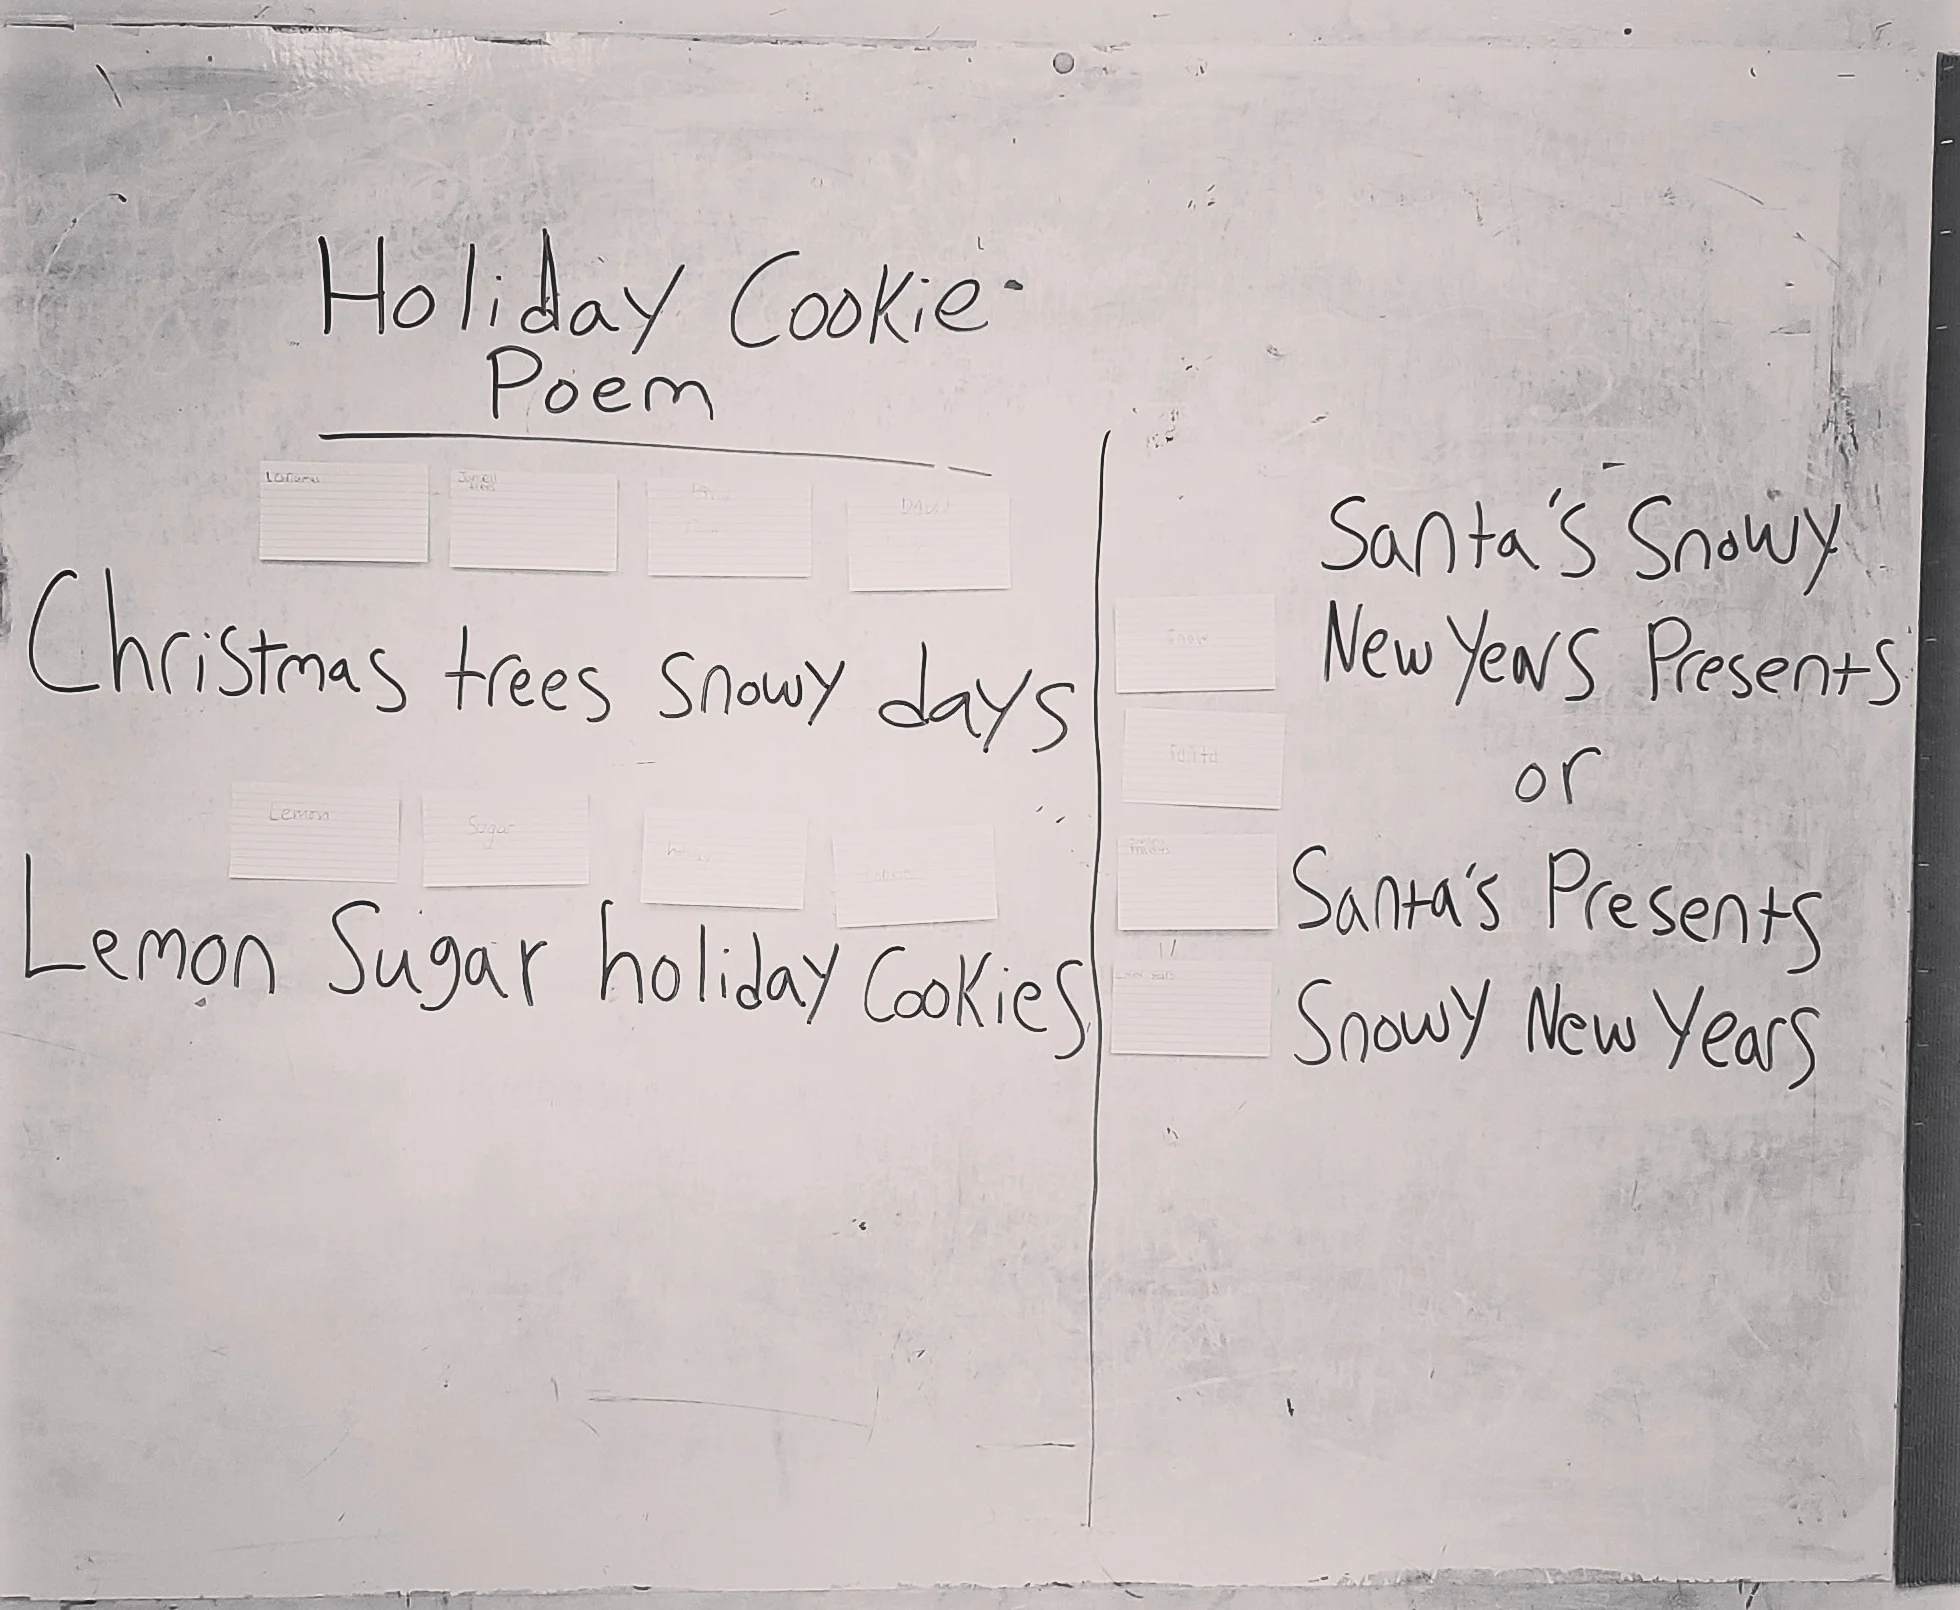 Holiday Cookie
Poem
Jamell
trees
David
Christmas trees snowy days
Lemon
Sugar
Lemon Sugar holiday Cookies
Santa's Snowy
New Years Presents
or
Santa's Presents
Snowy New Years